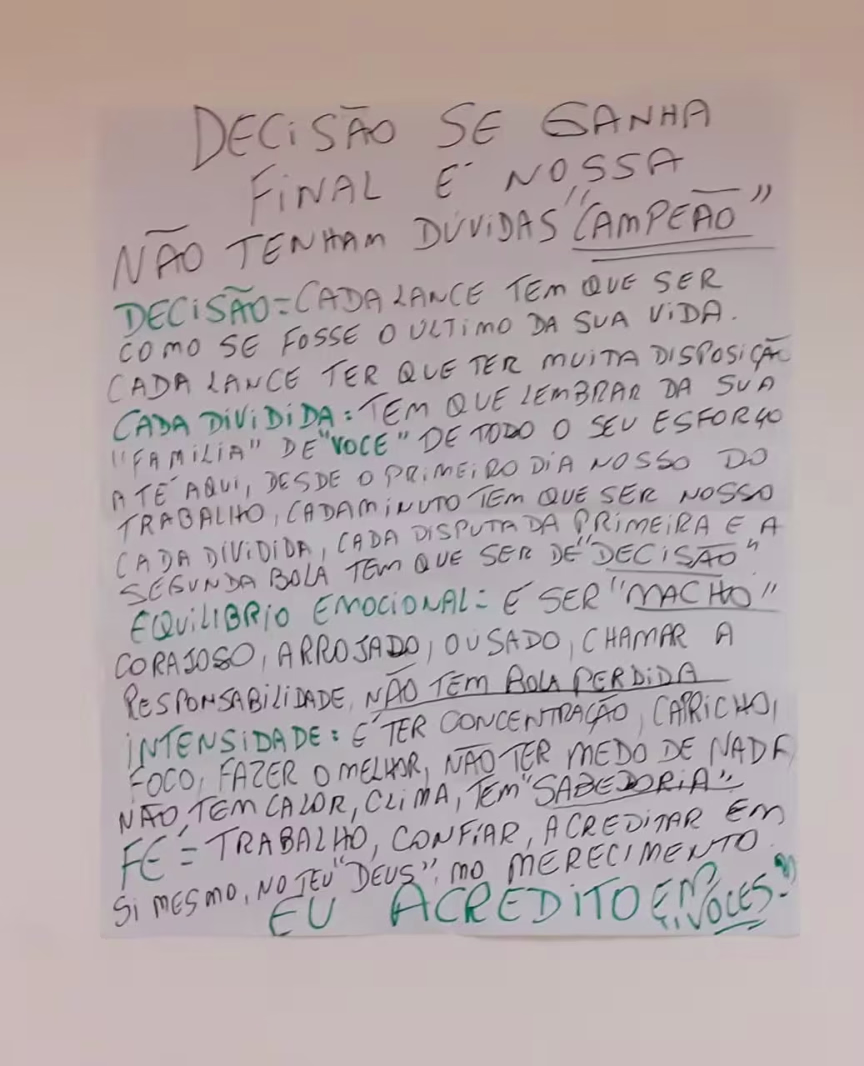 DECiSÃO SE GANHA
FiNAL É NOSSA
NÃO TENHAM DÚViDAS "CAMPEÃO"
DECiSÃO=CADA LANCE TEM QUE SER
COMO SE FOSSE O ULTIMO DA SUA ViDA.
CADA LANCE TER QUE TER MUITA DISPOSIÇÃO
CADA DIVIDIDA: TEM QUE LEMBRAR DA SUA
"FAMILIA" DE "VOCE" DE TODO O SEU ESFORÇO
ATÉ AQUi, DESDE O PRiMEiRO DiA NOSSO DO
TRABALHO, CADA MINUTO TEM QUE SER NOSSO
CADA DIVIDIDA, CADA DISPUTA DA PRIMEIRA E A
SEGUNDA BOLA TEM QUE SER DE "DECISÃO"
EQUiLIBRiO EMOCiONAL= É SER "MACHO"
CORAJOSO, ARROJADO, OUSADO, CHAMAR A
RESPONSABiLiDADE, NÃO TEM BOLA PERDiDA
iNTENSiDADE: É TER CONCENTRAÇÃO, CAPRiCHO,
FOCO, FAZER O MELHOR, NÃO TER MEDO DE NADA
NÃO TEM CALOR, CLiMA, TEM "SABEDORiA"
FÉ= TRABALHO, CONFiAR, ACREDiTAR EM
Si MESMO, NO TEU "DEUS", MO MERECIMENTO
EU ACREDiTO EM
VOCES